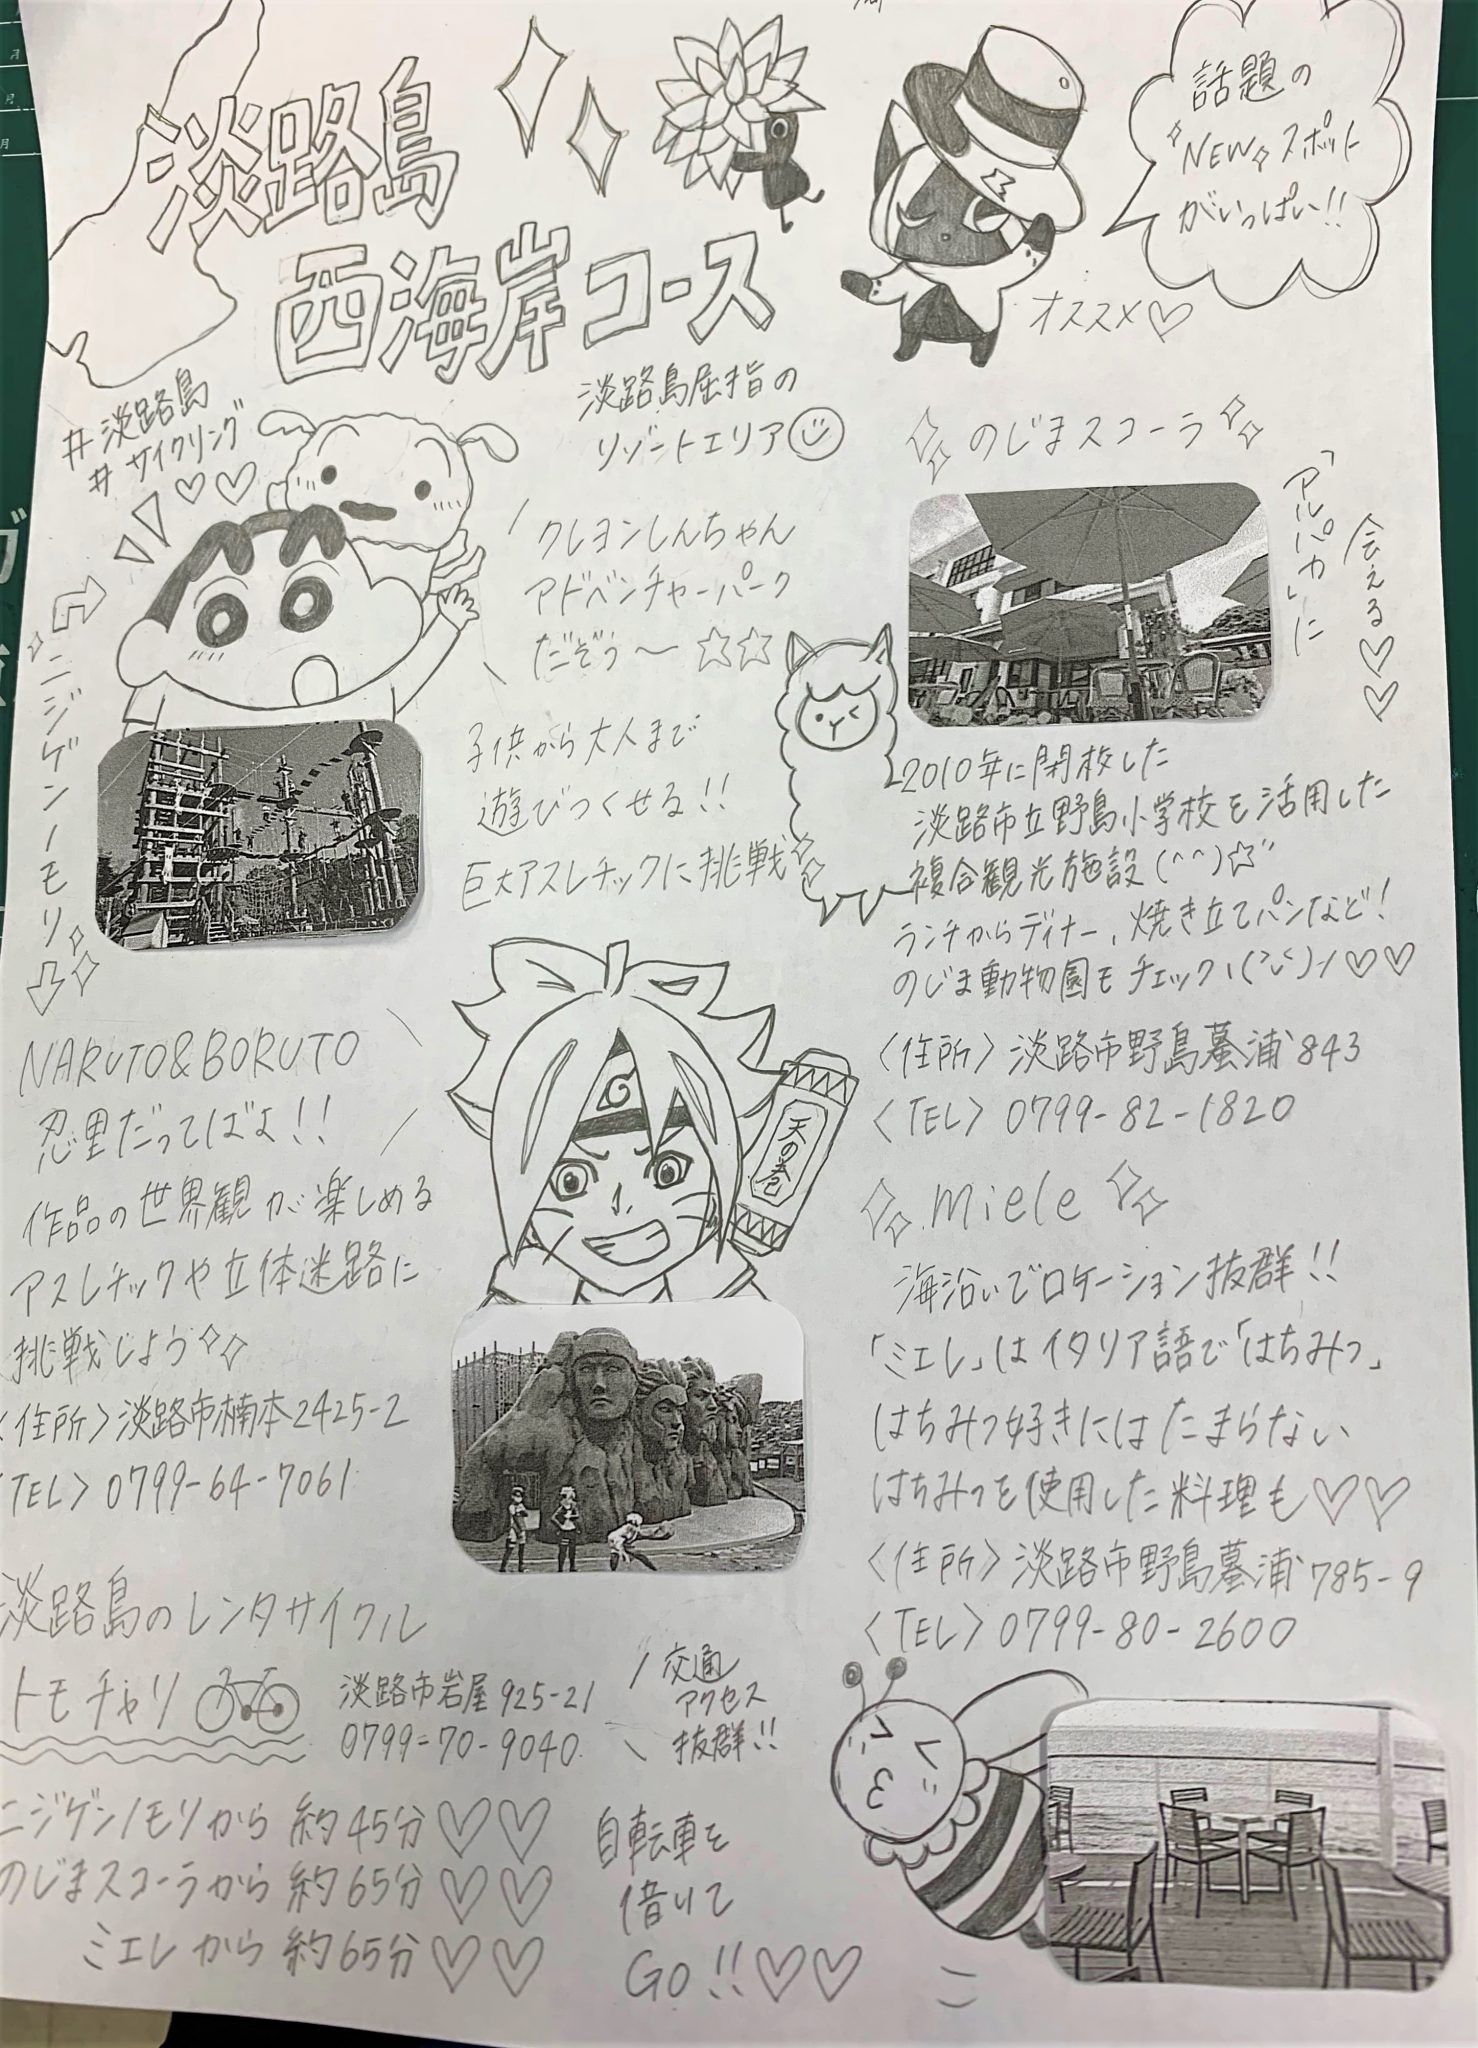 淡路島
西海岸コース
話題の
NEW スポット
がいっぱい!!
オススメ♡
#淡路島
#サイクリング
淡路島屈指の
リゾートエリア
クレヨンしんちゃん
アドベンチャーパーク
だぞぅ〜☆☆
ニジゲンノモリ
子供から大人まで
遊びつくせる!!
巨大アスレチックに挑戦
NARUTO&BORUTO
忍里だってばよ!!
作品の世界観が楽しめる
アスレチックや立体迷路に
挑戦しよう
〈住所〉淡路市楠本2425-2
〈TEL〉0799-64-7061
天の巻
淡路島のレンタサイクル
トモチャリ
淡路市岩屋925-21
0799-70-9040
交通
アクセス
抜群!!
ニジゲンノモリから 約45分♡♡
のじまスコーラから 約65分♡♡
ミエレから 約65分♡♡
自転車を
借りて
GO!!♡♡
のじまスコーラ
「アルパカ」に
会える♡♡
2010年に閉校した
淡路市立野島小学校を活用した
複合観光施設(^^)☆
ランチからディナー、焼き立てパンなど!
のじま動物園もチェック♡♡
〈住所〉淡路市野島蟇浦843
〈TEL〉0799-82-1820
miele
海沿いでロケーション抜群!!
「ミエレ」はイタリア語で「はちみつ」
はちみつ好きにはたまらない
はちみつを使用した料理も♡♡
〈住所〉淡路市野島蟇浦785-9
〈TEL〉0799-80-2600